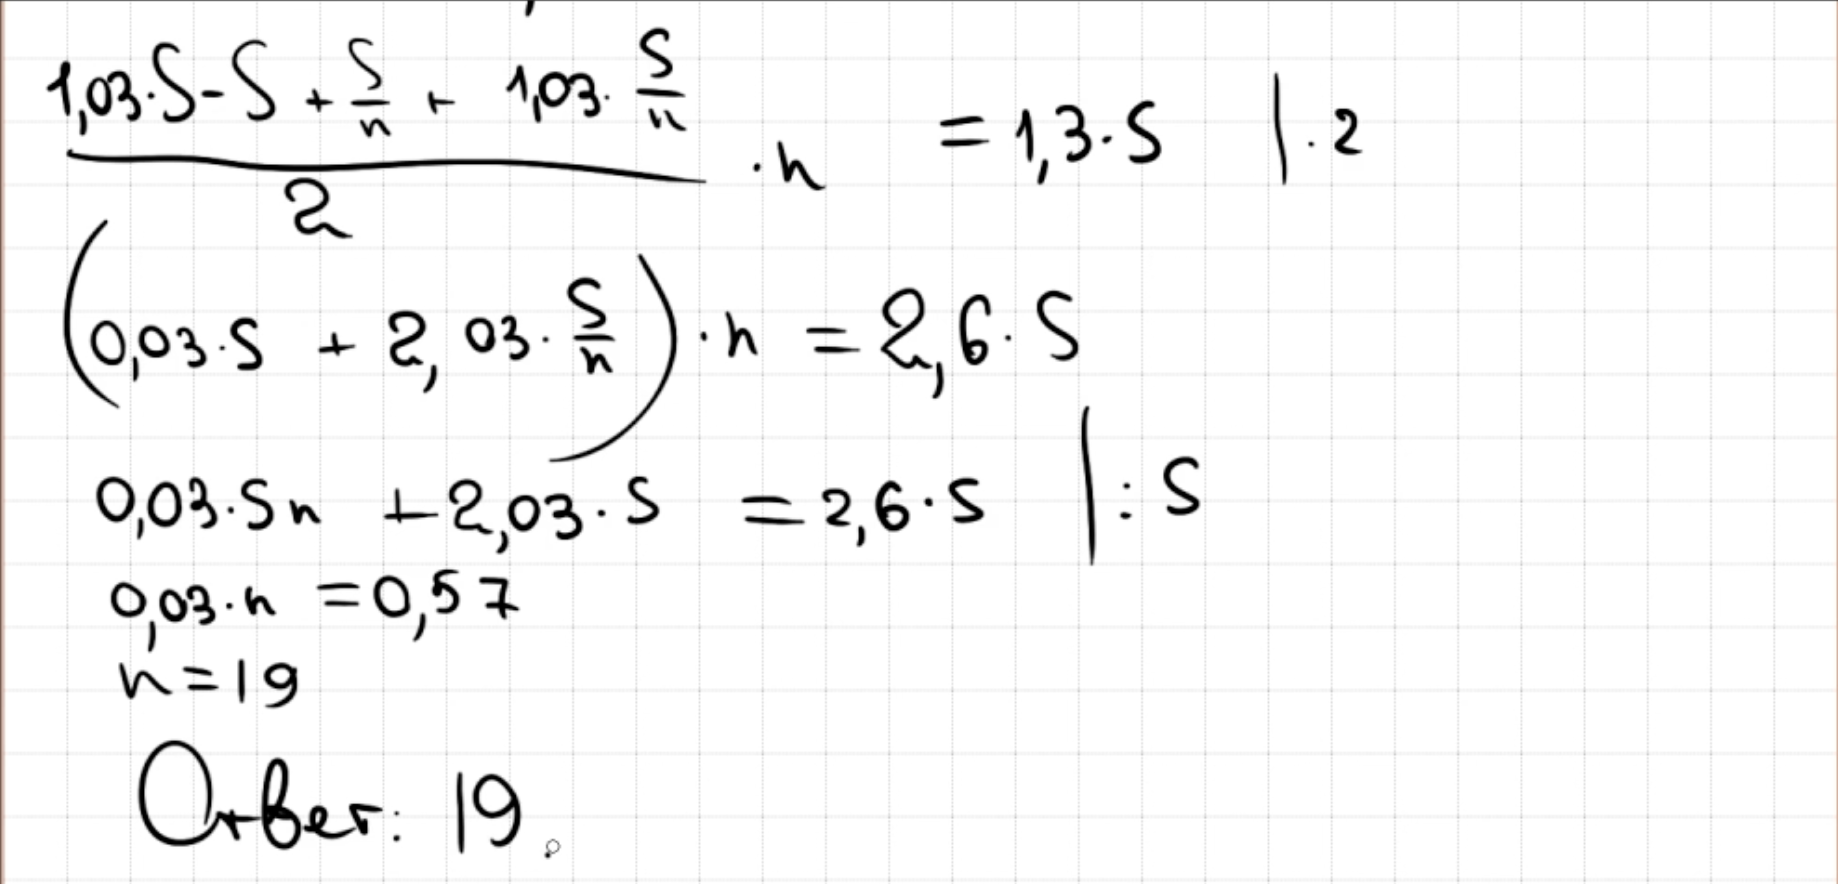 (1,03·S - S + S/n + 1,03·S/n)/2 · n = 1,3·S | ·2
(0,03·S + 2,03·S/n) · n = 2,6·S
0,03·Sn + 2,03·S = 2,6·S | : S
0,03·n = 0,57
n = 19
Ответ: 19.